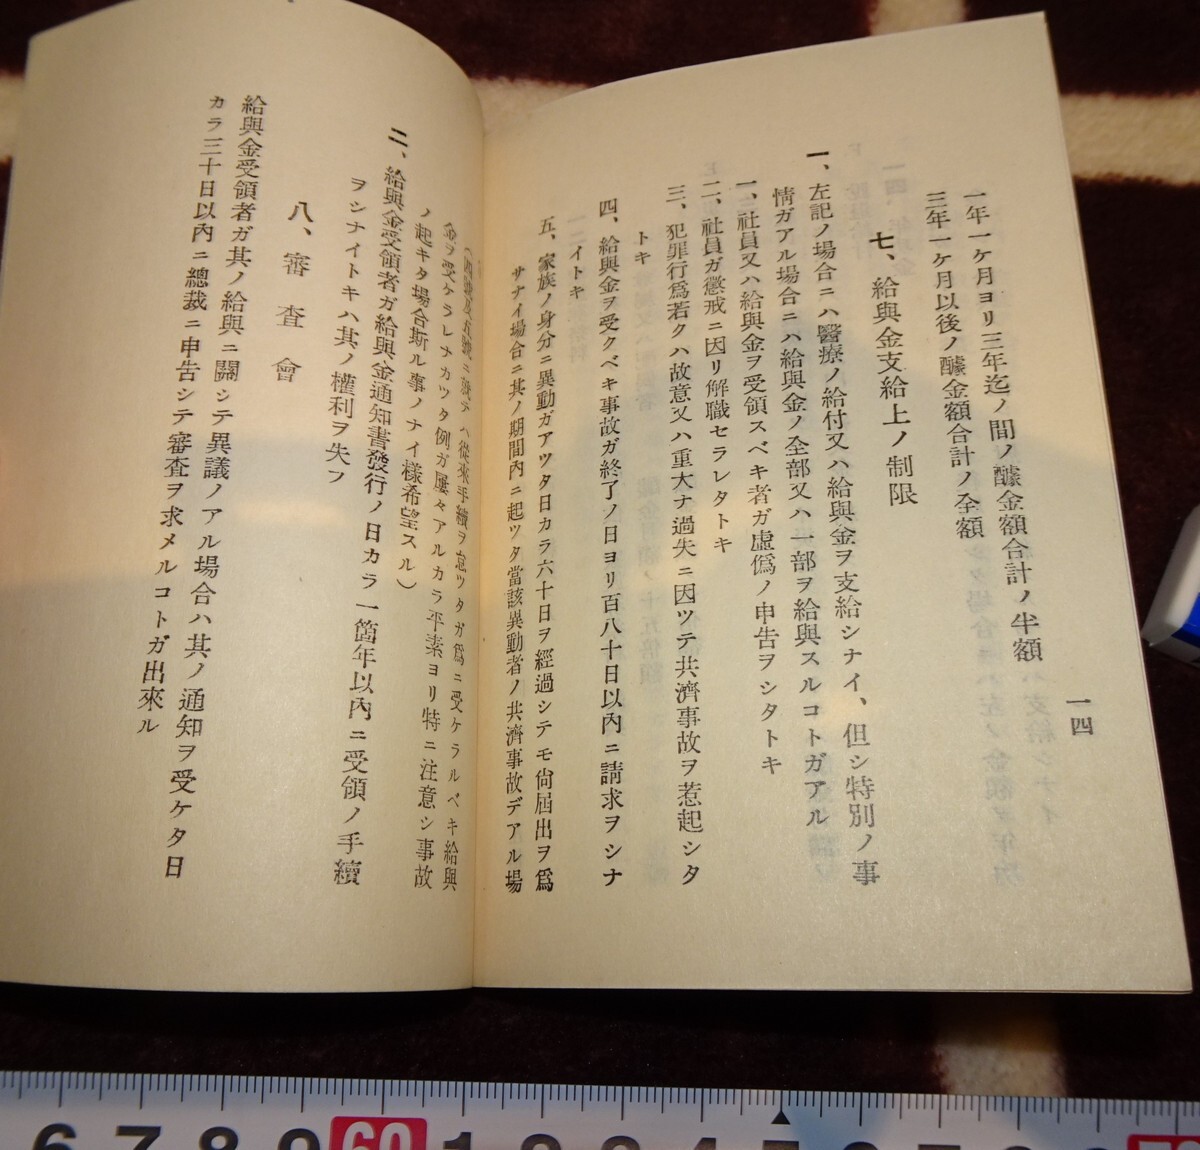 一年一ケ月ヨリ三年迄ノ間ノ醵金額合計ノ半額
三年一ケ月以後ノ醵金額合計ノ全額
七、給與金支給上ノ制限
一、左記ノ場合ニハ醫療ノ給付又ハ給與金ヲ支給シナイ、但シ特別ノ事
情ガアル場合ニハ給與金ノ全部又ハ一部ヲ給與スルコトガアル
一、社員又ハ給與金ヲ受領スベキ者ガ虛僞ノ申告ヲシタトキ
二、社員ガ懲戒ニ因リ解職セラレタトキ
三、犯罪行爲若クハ故意又ハ重大ナ過失ニ因ツテ共濟事故ヲ惹起シタ
トキ
四、給與金ヲ受クベキ事故ガ終了ノ日ヨリ百八十日以內ニ請求ヲシナ
イトキ
五、家族ノ身分ニ異動ガアツタ日カラ六十日ヲ經過シテモ尙屆出ヲ爲
サナイ場合ニ其ノ期間內ニ起ツタ當該異動者ノ共濟事故デアル場
一四
ハ從來手續ヲ怠ツタガ爲ニ受ケラルベキ給與
金ヲ受ケラレナカツタ例ガ屢々アルカラ平素ヨリ特ニ注意シ事故
ノ起キタ場合斯ル事ノナイ樣希望スル）
二、給與金受領者ガ給與金通知書發行ノ日カラ一箇年以內ニ受領ノ手續
ヲシナイトキハ其ノ權利ヲ失フ
八、審査會
給與金受領者ガ其ノ給與ニ關シテ異議ノアル場合ハ其ノ通知ヲ受ケタ日
カラ三十日以內ニ總裁ニ申告シテ審査ヲ求メルコトガ出來ル
6 7 8 9 60 1 2 3 4 5
70